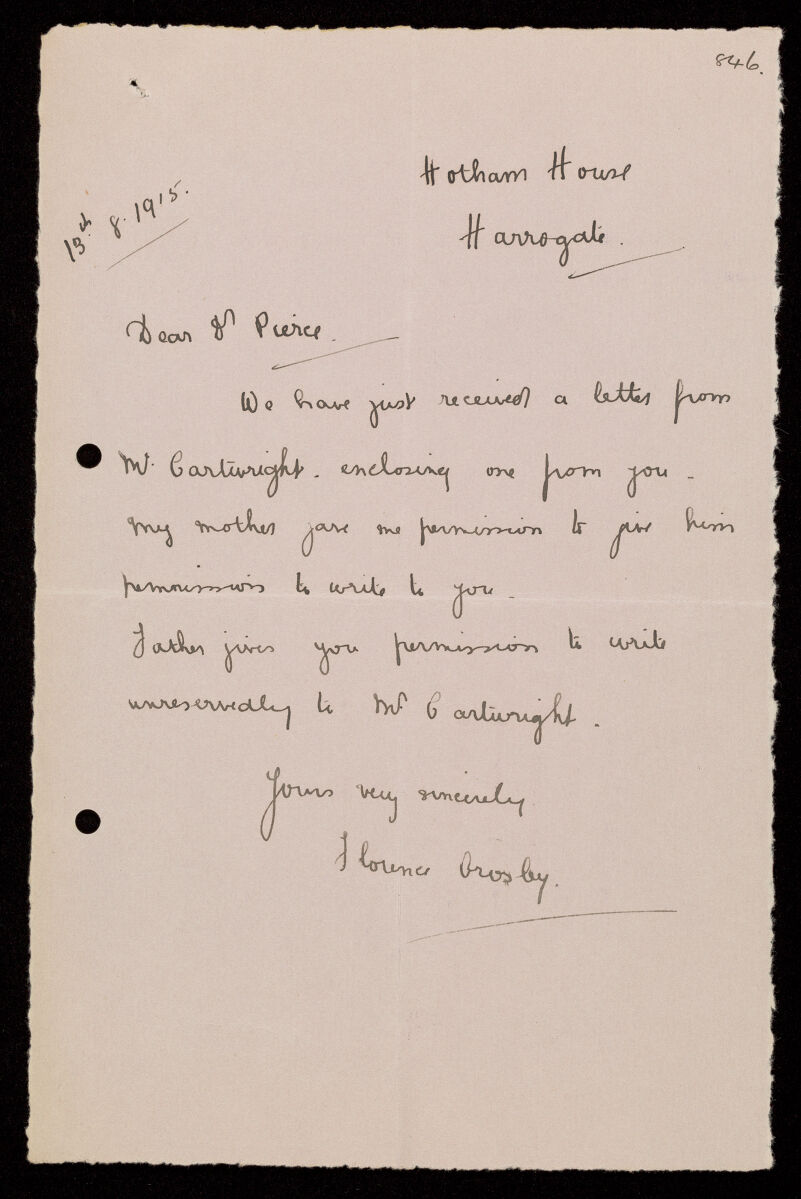 846.
Hotham House
Harrogate.
13th 8. 1915.
Dear Dr Pierce.
We have just received a letter from
Mr. Cartwright. enclosing one from you -
My mother gave me permission to give him
permission to write to you -
Father gives you permission to write
unreservedly to Mr Cartwright.
Yours very sincerely
Florence Crosby.